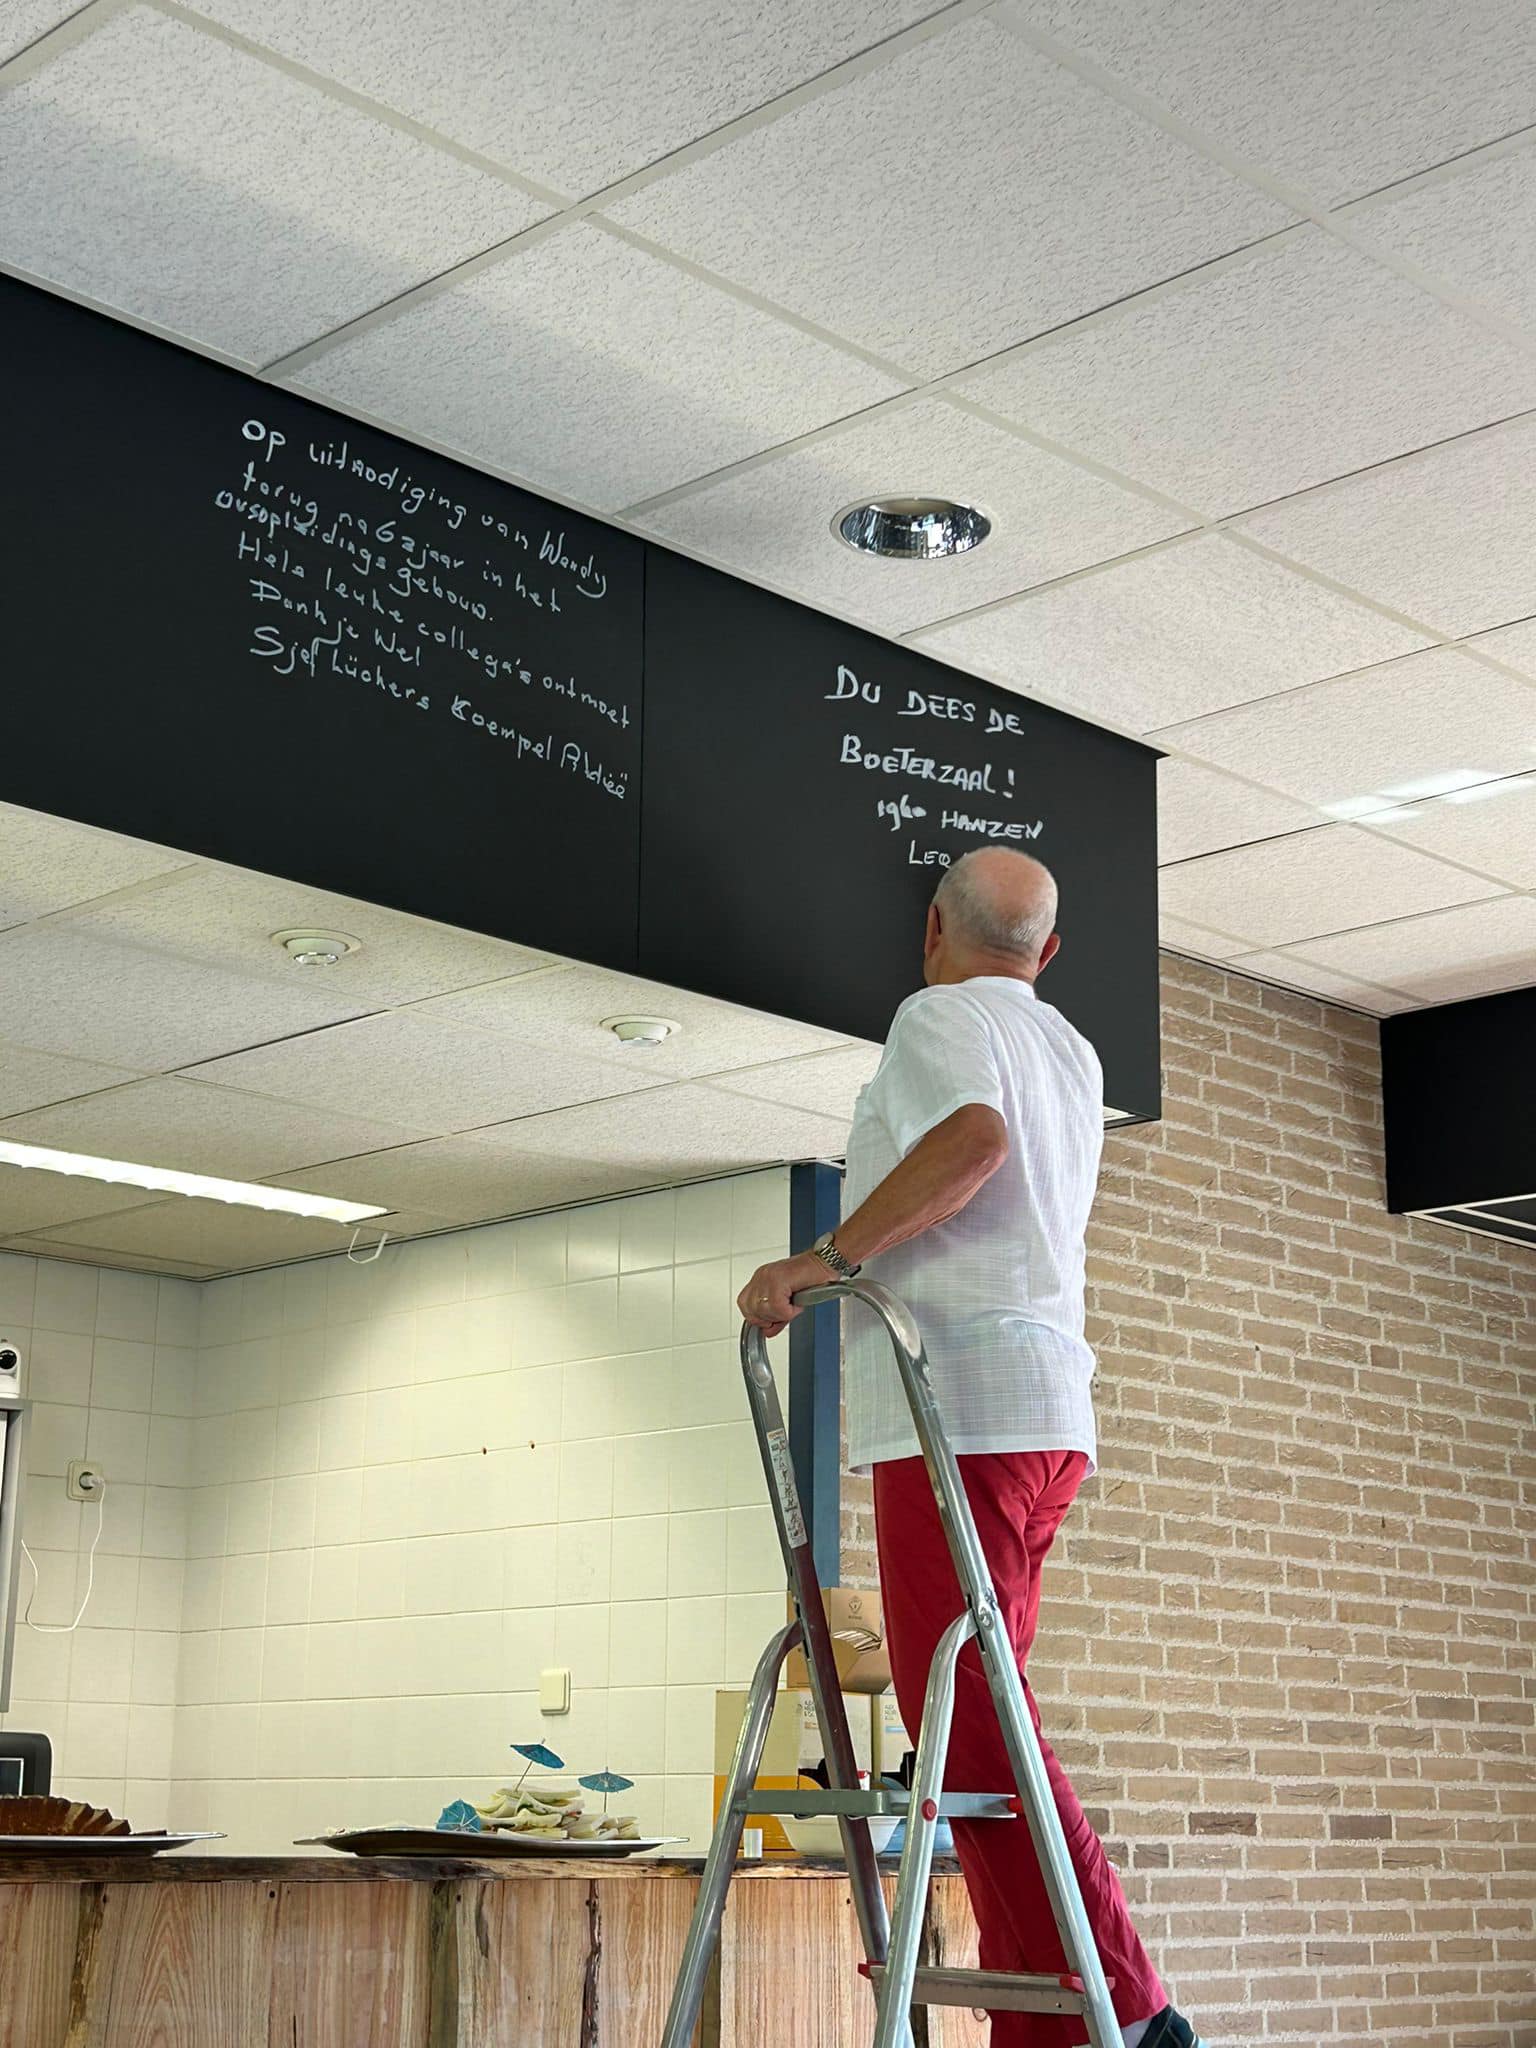 Op uitnodiging van Wendy
terug na 62 jaar in het
ovsopleidings gebouw.
Hele leuke collega's ontmoet
Dank je Wel
Sjef Lüchers Koempel Aldieë
DU DEES DE
BOETERZAAL!
1960 HANZEN
LEO